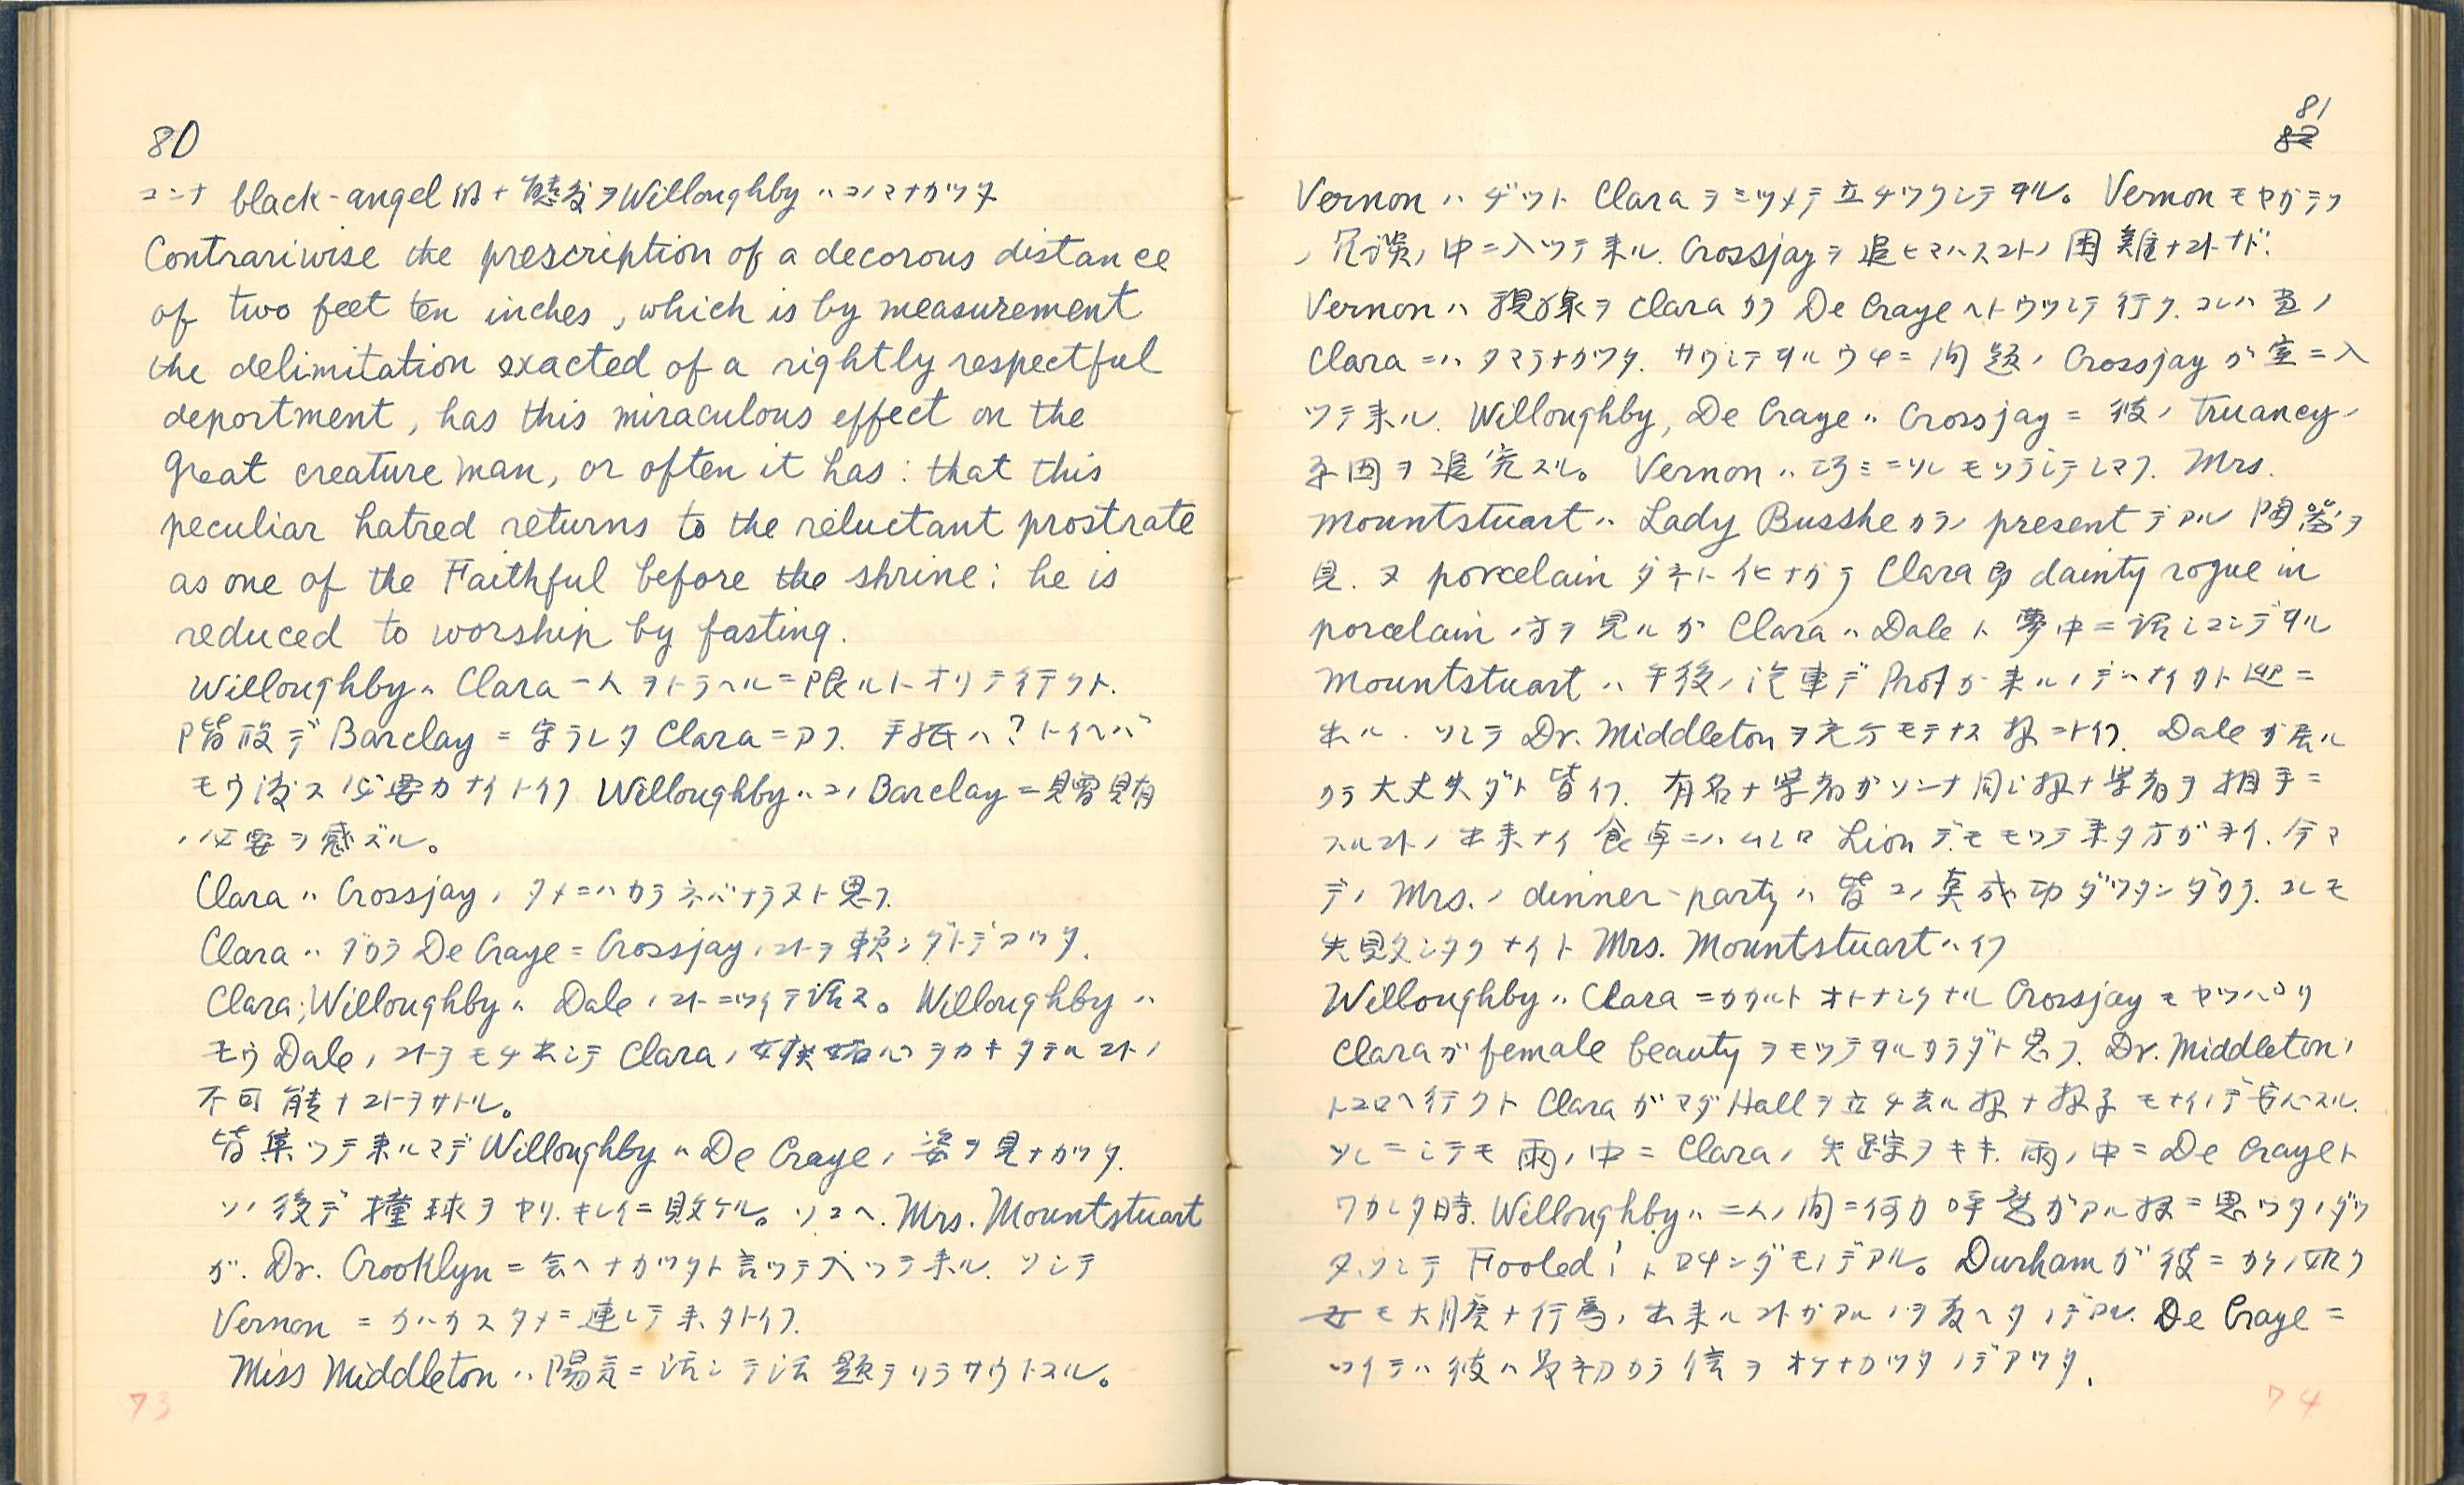 80
コンナ black-angel 的ナ聴受ヲ Willoughby ハコノマナカツタ
Contrariwise the prescription of a decorous distance
of two feet ten inches, which is by measurement
the delimitation exacted of a rightly respectful
deportment, has this miraculous effect on the
great creature man, or often it has: that this
peculiar hatred returns to the reluctant prostrate
as one of the Faithful before the shrine: he is
reduced to worship by fasting.
Willoughby ハ Clara 一人ヲトラヘル=限ルトオリテ行クト.
階段デ Barclay ニ守ラレタ Clara ニアフ. 手紙ハ? トイヘバ
モウ渡ス必要カナイトイフ Willoughby ハコノ Barclay ニ贈賄
ノ必要ヲ感ズル。
Clara ハ Crossjay ノタメニハカラネバナラヌト思フ.
Clara ハダカラ De Craye ニ Crossjay ノコトヲ頼ンダトデアツタ.
Clara; Willoughby ハ Dale ノコトニツイテ話ス。 Willoughby ハ
モウ Dale ノコトヲモチ出シテ Clara ノ嫉妬心ヲカキタテルコトノ
不可能ナコトヲサトル。
皆集ツテ来ルマデ Willoughby ハ De Craye ノ姿ヲ見ナカツタ.
ソノ後デ撞球ヲヤリ. キレイニ敗ケル。ソコヘ. Mrs. Mountstuart
ガ. Dr. Crooklyn ニ会ヘナカツタト言ツテ入ツテ来ル. ソシテ
Vernon ヲ カハカスタメニ連レテ来タトイフ.
Miss Middleton ハ陽気ニ話シテ話題ヲソラサウトスル。
73
81
Vernon ハヂツト Clara ヲミツメテ立チツクシテヰル。 Vernon モヤガテソ
ノ冗談ノ中ニ入ツテ来ル. Crossjay ヲ追ヒマハスコトノ困難ナコトナド.
Vernon ハ視線ヲ Clara カラ De Craye ヘトウツシテ行ク. コレハ
Clara ニハタマラナカツタ. サウシテヰルウチニ問題ノ Crossjay ガ室ニ入
ツテ来ル. Willoughby, De Craye ハ Crossjay ニ彼ノ truancy ノ
原因ヲ追究スル。 Vernon ハ巧ミニソレモソラシテシマフ. Mrs.
Mountstuart ハ Lady Busshe カラノ present デアル陶器ヲ
見. 又 porcelain ダネト化ナガラ Clara 即 dainty rogue in
porcelain ノ方ヲ見ルガ Clara ハ Dale ト夢中ニ話シコンデヰル
Mountstuart ハ午後ノ汽車デ Prof ガ来ルノデハナイカト迎ニ
出ル. ソシテ Dr. Middleton ヲ充分モテナス様ニトイフ. Dale ガ居ル
カラ大丈夫ダト皆イフ. 有名ナ学者ガソンナ同ジ様ナ学者ヲ相手ニ
スルコトノ出来ナイ食卓ニハムシロ Lion デモモツテ来タ方ガヨイ. 今マ
デノ Mrs. ノ dinner-party ハ皆コノ莫成功ダツタンダカラ. コレモ
失敗シタクナイト Mrs. Mountstuart ハイフ
Willoughby ハ Clara ニカカルトオトナシクナル Crossjay モヤツパリ
Clara ガ female beauty ヲモツテヰルカラダト思フ. Dr. Middleton ノ
トコロヘ行クト Clara ガマダ Hall ヲ立チ去ル様ナ様子モナイノデ安心スル.
ソレニシテモ雨ノ中ニ Clara ノ失踪ヲキキ. 雨ノ中ニ De Craye ト
ワカレタ時. Willoughby ハ二人ノ間ニ何カ呼應ガアル様ニ思ツタノダツ
タ. ソシテ Fooled! ト叫ンダモノデアル。 Durham ガ彼ニカクノ如ク
女モ大膽ナ行為ノ出来ルコトガアルノヲ教ヘタノデアル. De Craye ニ
ツイテハ彼ハ最初カラ信ヲオケナカツタノデアツタ.
74